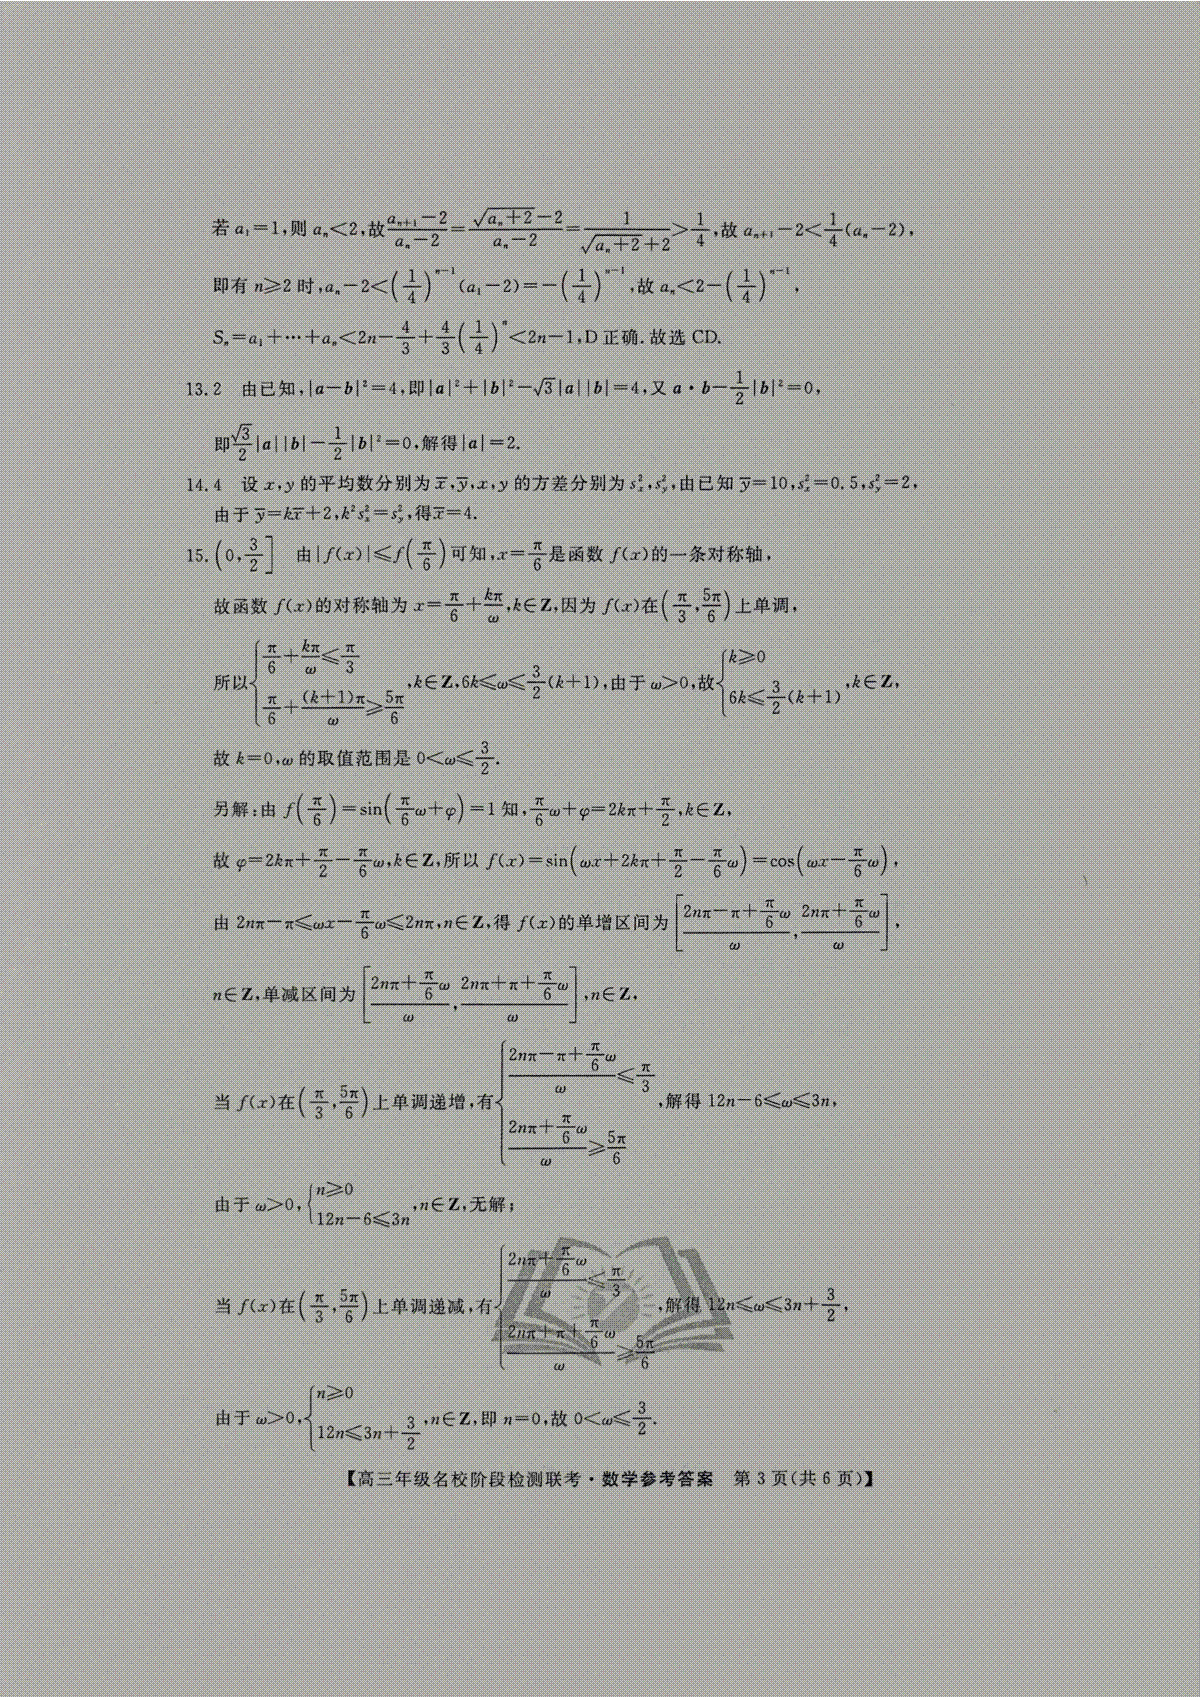 若 a₁=1,则 aₙ<2,故(aₙ₊₁-2)/(aₙ-2)=(√(aₙ+2)-2)/(aₙ-2)=1/(√(aₙ+2)+2)>1/4,故 aₙ₊₁-2<1/4(aₙ-2),
即有 n⩾2 时,aₙ-2<(1/4)ⁿ⁻¹(a₁-2)=-(1/4)ⁿ⁻¹,故 aₙ<2-(1/4)ⁿ⁻¹,
Sₙ=a₁+⋯+aₙ<2n-4/3+4/3(1/4)ⁿ<2n-1,D 正确.故选 CD.
13.2 由已知,|a-b|²=4,即|a|²+|b|²-√3|a||b|=4,又 a·b-1/2|b|²=0,
即√3/2|a||b|-1/2|b|²=0,解得|a|=2.
14.4 设 x,y 的平均数分别为 x̅,y̅,x,y 的方差分别为 sₓ²,s_y²,由已知 y̅=10,sₓ²=0.5,s_y²=2,
由于 y̅=kx̅+2,k²sₓ²=s_y²,得x̅=4.
15.(0,3/2] 由|f(x)|⩽f(π/6)可知,x=π/6是函数 f(x)的一条对称轴,
故函数 f(x)的对称轴为 x=π/6+kπ/ω,k∈Z,因为 f(x)在(π/3,5π/6)上单调,
所以{π/6+kπ/ω⩽π/3 π/6+(k+1)π/ω⩾5π/6,k∈Z,6k⩽ω⩽3/2(k+1),由于 ω>0,故{k⩾0 6k⩽3/2(k+1),k∈Z,
故 k=0,ω 的取值范围是 0<ω⩽3/2.
另解:由 f(π/6)=sin(π/6ω+φ)=1 知,π/6ω+φ=2kπ+π/2,k∈Z,
故 φ=2kπ+π/2-π/6ω,k∈Z,所以 f(x)=sin(ωx+2kπ+π/2-π/6ω)=cos(ωx-π/6ω),
由 2nπ-π⩽ωx-π/6ω⩽2nπ,n∈Z,得 f(x)的单增区间为[(2nπ-π+π/6ω)/ω,(2nπ+π/6ω)/ω],
n∈Z,单减区间为[(2nπ+π/6ω)/ω,(2nπ+π+π/6ω)/ω],n∈Z,
当 f(x)在(π/3,5π/6)上单调递增,有{(2nπ-π+π/6ω)/ω⩽π/3 (2nπ+π/6ω)/ω⩾5π/6,解得 12n-6⩽ω⩽3n,
由于 ω>0,{n⩾0 12n-6⩽3n,n∈Z,无解;
当 f(x)在(π/3,5π/6)上单调递减,有{(2nπ+π/6ω)/ω⩽π/3 (2nπ+π+π/6ω)/ω⩾5π/6,解得 12n⩽ω⩽3n+3/2,
由于 ω>0,{n⩾0 12n⩽3n+3/2,n∈Z,即 n=0,故 0<ω⩽3/2.
【高三年级名校阶段检测联考·数学参考答案 第 3 页(共 6 页)】